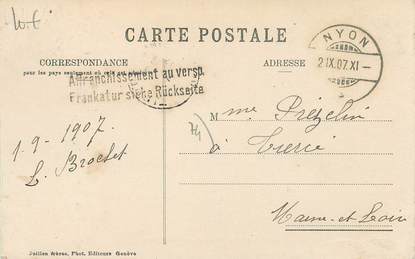 CARTE POSTALE
CORRESPONDANCE
pour les pays seulement où cela est admis
ADRESSE
NYON
2 IX.07.XI
Affranchissement au verso
Frankatur siehe Rückseite
1-9-1907.
L. Brochet
Mme Prézelin
à Tiercé
Maine-et-Loir
Jullien frères, Phot. Editeurs Genève